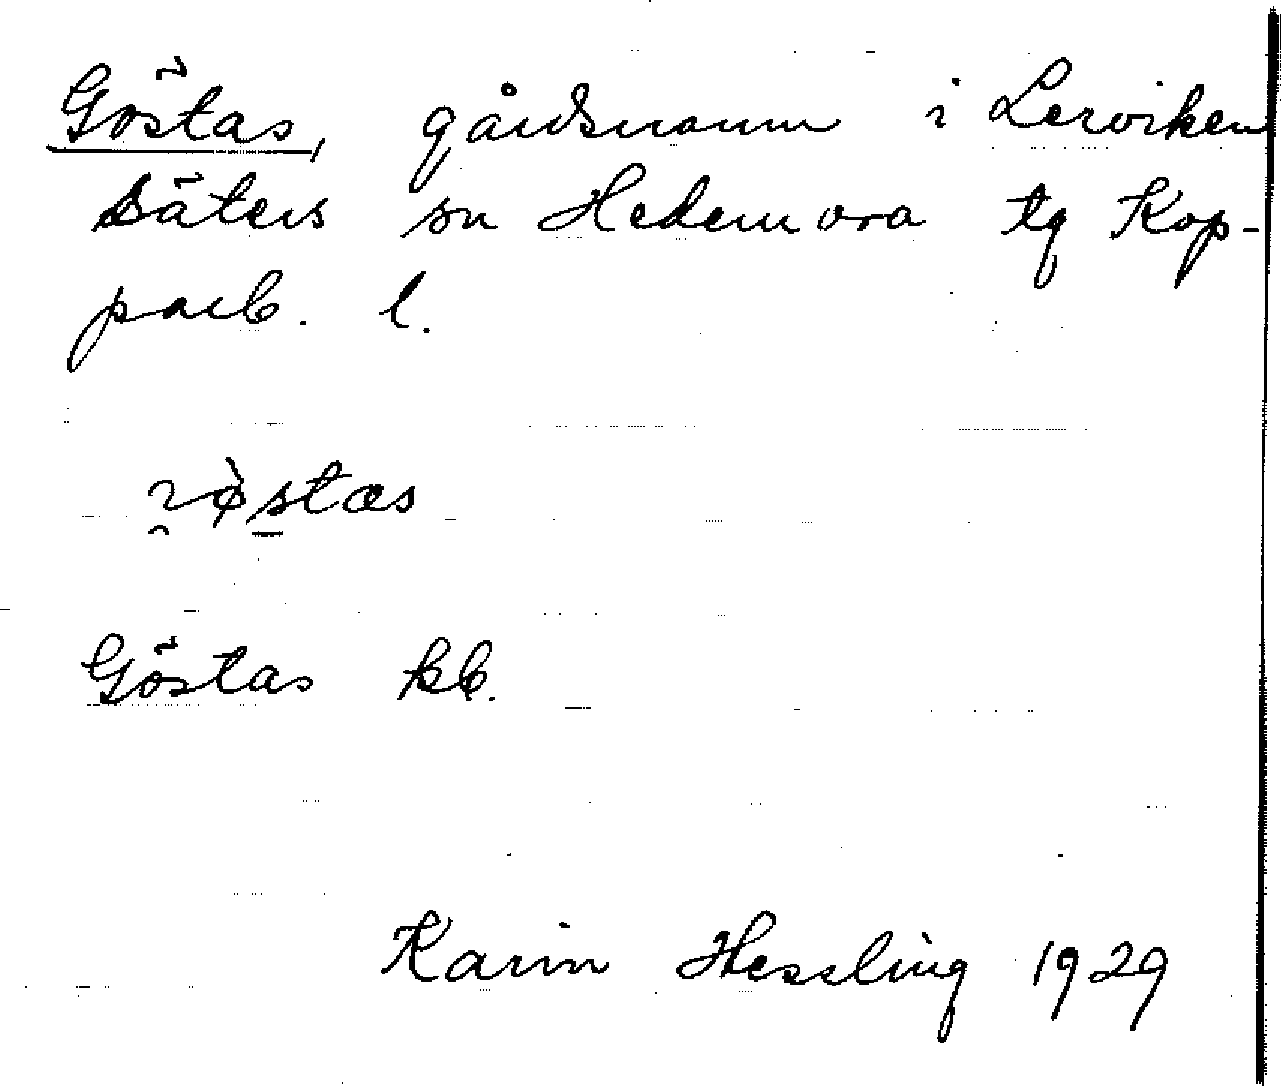 Göstas, gårdsnamn i Lerviken
Säters sn Hedemora tg Kop-
parb. l.
Göstas kb.
Karin Hessling 1929